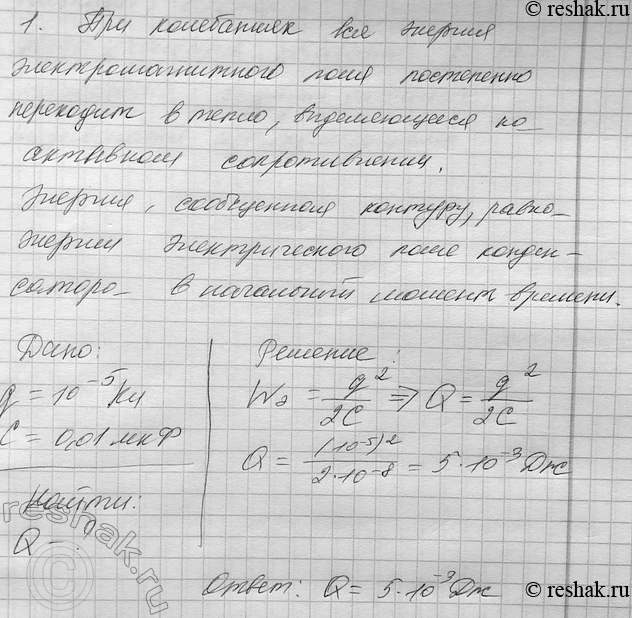 © reshak.ru
1. При колебаниях вся энергия
электромагнитного поля постепенно
переходит в тепло, выделяющееся на
активном сопротивлении.
Энергия, сообщенная контуру, равна
энергии электрического поля конден-
сатора в начальный момент времени.
Дано:
q = 10⁻⁵ Кл
C = 0,01 мкФ
Найти:
Q - .
Решение:
Wэ = q²/2C ⇒ Q = q²/2C
Q = (10⁻⁵)²/2·10⁻⁸ = 5·10⁻³ Дж
reshak.ru
Ответ: Q = 5·10⁻³ Дж
© reshak.ru